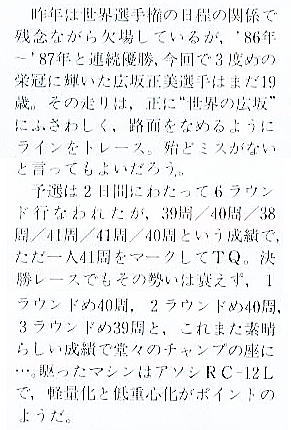 昨年は世界選手権の日程の関係で
残念ながら欠場しているが、'86年
−'87年と連続優勝,今回で3度めの
栄冠に輝いた広坂正美選手はまだ19
歳。その走りは，正に“世界の広坂”
にふさわしく，路面をなめるように
ラインをトレース。殆どミスがない
と言ってもよいだろう。
予選は2日間にわたって6ラウン
ド行なわれたが，39周／40周／38
周／41周／41周／40周という成績で，
ただ一人41周をマークしてTQ。決
勝レースでもその勢いは衰えず，1
ラウンドめ40周，2ラウンドめ40周，
3ラウンドめ39周と，これまた素晴
らしい成績で堂々のチャンプの座に
…。駆ったマシンはアソシRC-12L
で，軽量化と低重心化がポイントの
ようだ。